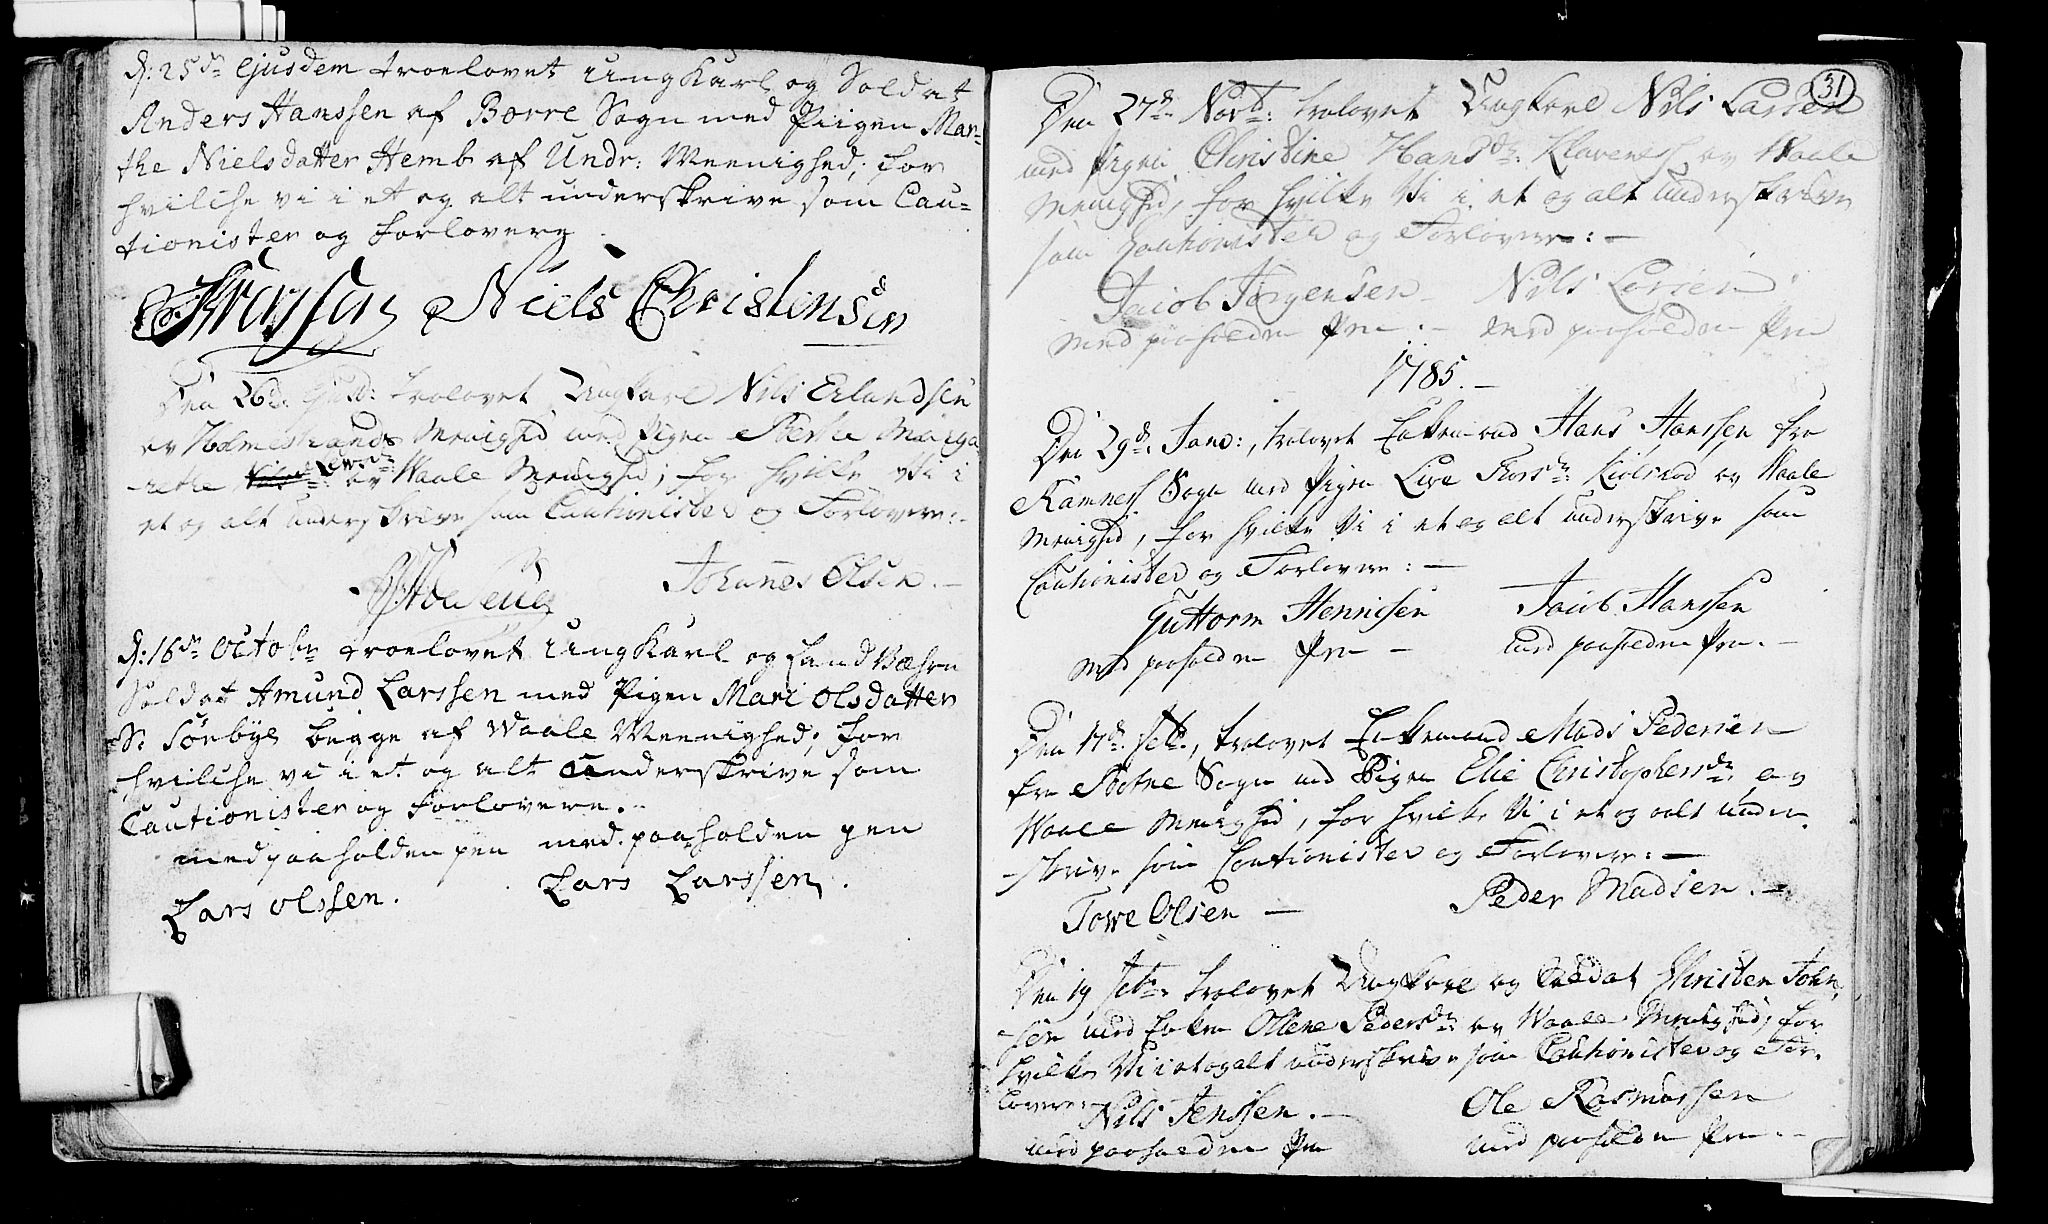 d: 25de Ejusdem troelovet ungKarl og Soldat
Anders Hanssen af Borre Sogn med Piigen Mar=
the Nielsdatter Hemb af Undr: Meenighed; for
hvilche vi i et og alt underskrive som Cau=
tionister og forlovere
Niels Christensen
Den 26de Ejusd: trolovet Ungkarl Nils Erlandsen
av Holmestrands Menighed med Pigen Berthe Marga
-rethe Larsdr: av Waale Menighed; for hvilke Vi i
et og alt underskrive som Cautionister og Forlovere:-
Johannes Olsen.-
d: 16de Octobr troelovet ungKarl og Land
Soldat Amund Larssen med Pigen Mari Olsdatter
S: Sörbye begge af Waale Meenighed; for
hvilche vi i et og alt underskrive som
Cautionister og forlovere.-
med paaholden pen med paaholden pen
Lars olssen. Lars Larssen.
31
Den 27de Novb: trolovet Ungkarl Nils Larsen
med Pigen Christine Hansdr: Klavenes av Waale
Menighed, for hvilke Vi i et og alt underskrive
som Cautionister og Forlovere:-
Jacob Jørgensen Nils Larsen
med paaholden Pen.- med paaholden Pen
1785.-
Den 29de Janv:, trolovet Enkemand Hans Hanssen fra
Ramnes Sogn med Pigen Live Thorsdr: Kiølerød av Waale
Menighed, for hvilke Vi i et og alt underskrive som
Cautionister og Forlovere:-
Guttorm Henrichsen Jacob Hanssen
med paaholden Pen - med paaholden Pen.-
Den 17de Feb., trolovet Enkemand Mads Pedersen
fra Botne Sogn med Pigen Elie Christophersdr: av
Waale Menighed, for hvilke Vi i et og alt under-
-skrive som Cautionister og Forlovere:-
Towe Olsen - Peder Madsen.-
Den 19 Febr: trolovet Ungkarl og Soldat Christen John-
-sen med Enken Ollene Pedersdr: av Waale Menighed; for
hvilke Vi i et og alt underskrive som Cautionister og For-
lovere:
Nils Jenssen.- Ole Rasmussen
med paaholden Pen med paaholden Pen.-